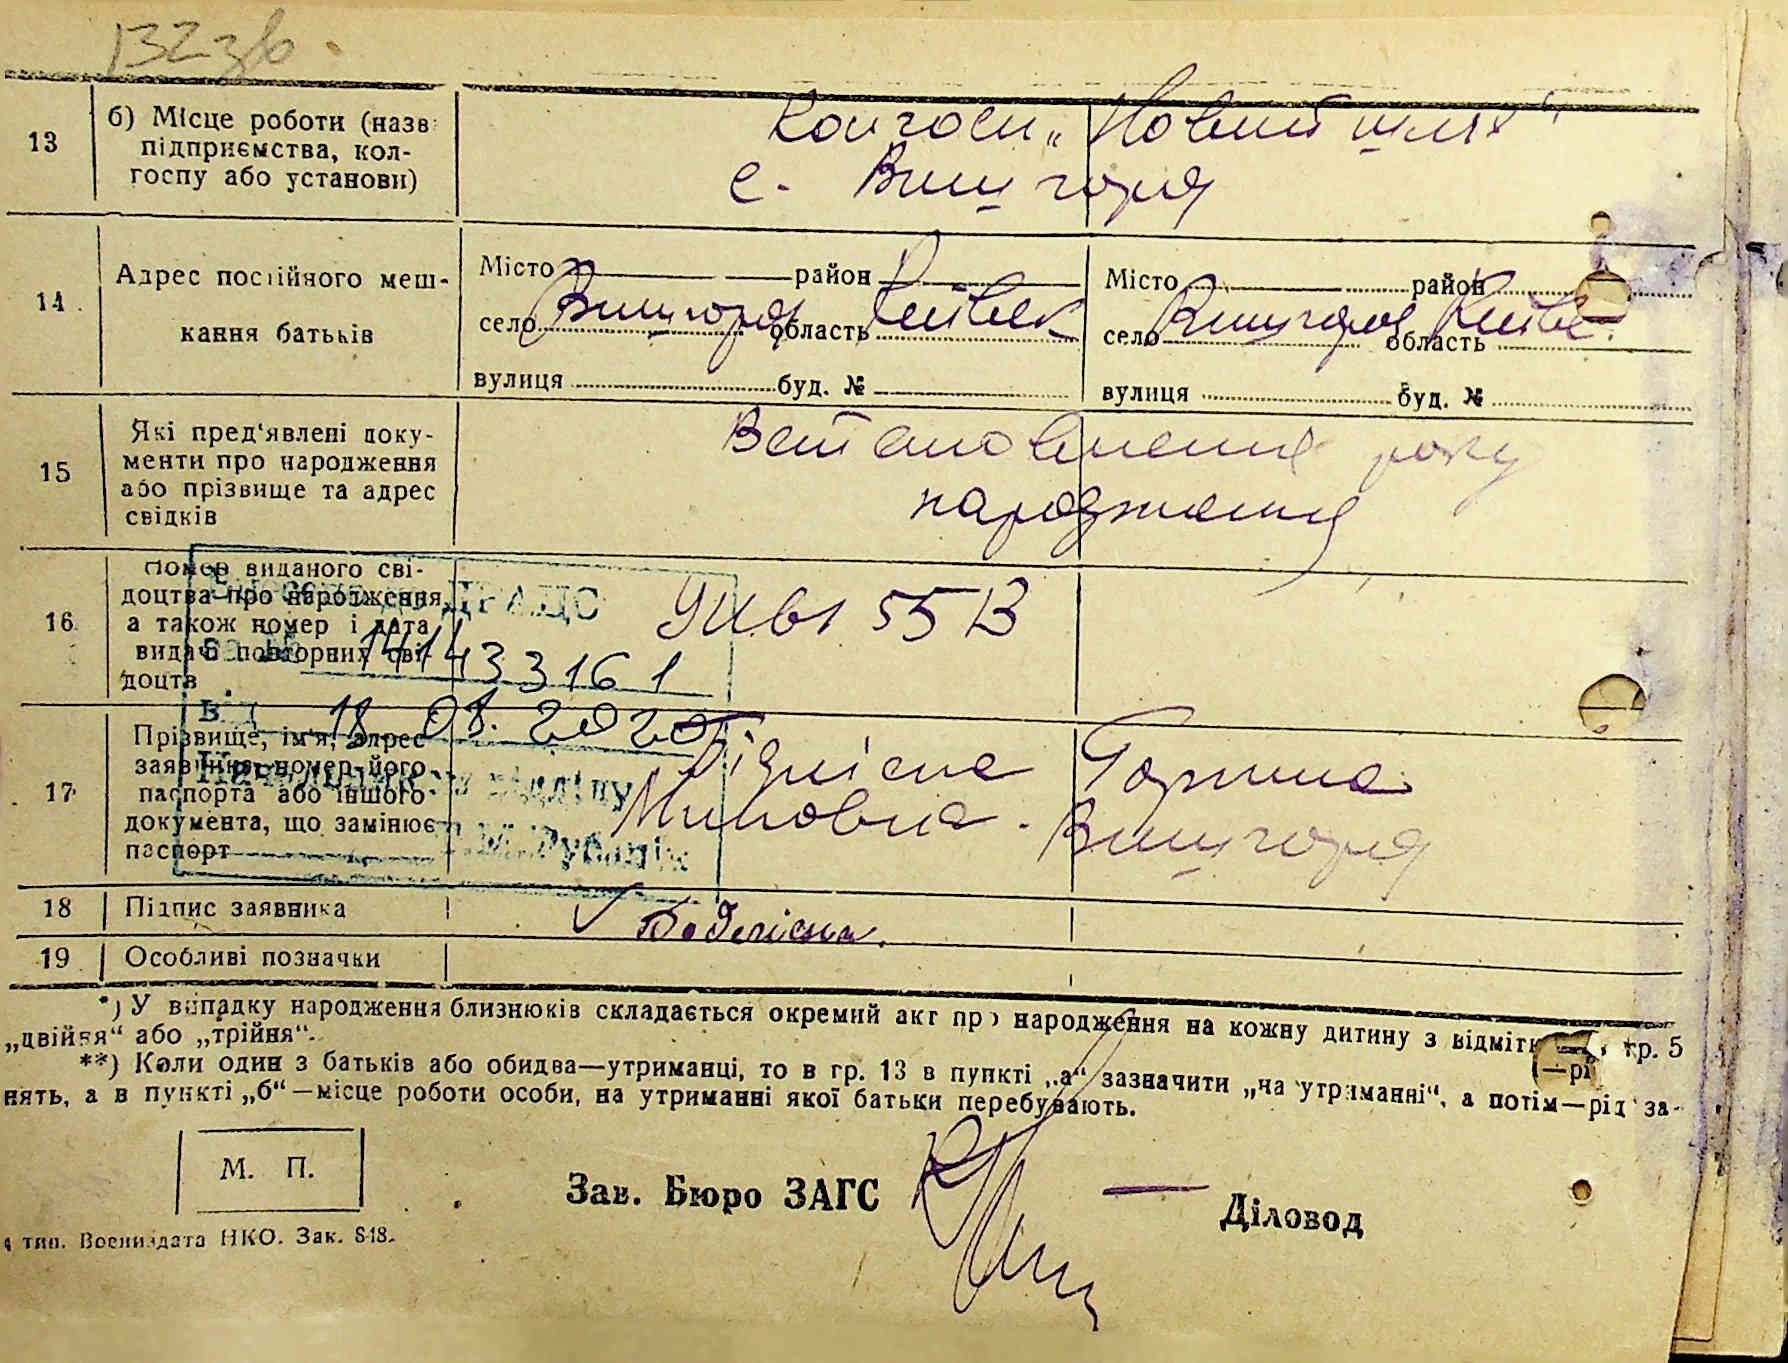 13
б) Місце роботи (назв
підприємства, кол-
госпу або установи)
Колгосп „Новий шлях“
с. Вишгород
14
Адрес постійного меш-
кання батьків
Місто район
село Вишгород область Київськ
вулиця буд. №
Місто район
село Вишгород область Київс.
вулиця буд. №
15
Які пред'явлені доку-
менти про народження
або прізвище та адрес
свідків
Встановлення року
народження
16
Номер виданого сві-
доцтва про народження,
а також номер і дата
видачі повторних сві-
доцтв
55 В
ДРАЦС
141433161
від 18.08.2020
17
Прізвище, ім'я, адрес
заявника, номер його
паспорта або іншого
документа, що замінює
паспорт
Горпина
Вишгород
18
Підпис заявника
19
Особливі позначки
*) У випадку народження близнюків складається окремий акт про народження на кожну дитину з відміт гр. 5
„двійня“ або „трійня“.
**) Коли один з батьків або обидва—утриманці, то в гр. 13 в пункті „а“ зазначити „на утриманні“, а потім—рід за-
нять, а в пункті „б“—місце роботи особи, на утриманні якої батьки перебувають.
М. П.
Зав. Бюро ЗАГС
Діловод
тип. Воениздата НКО. Зак. 818.